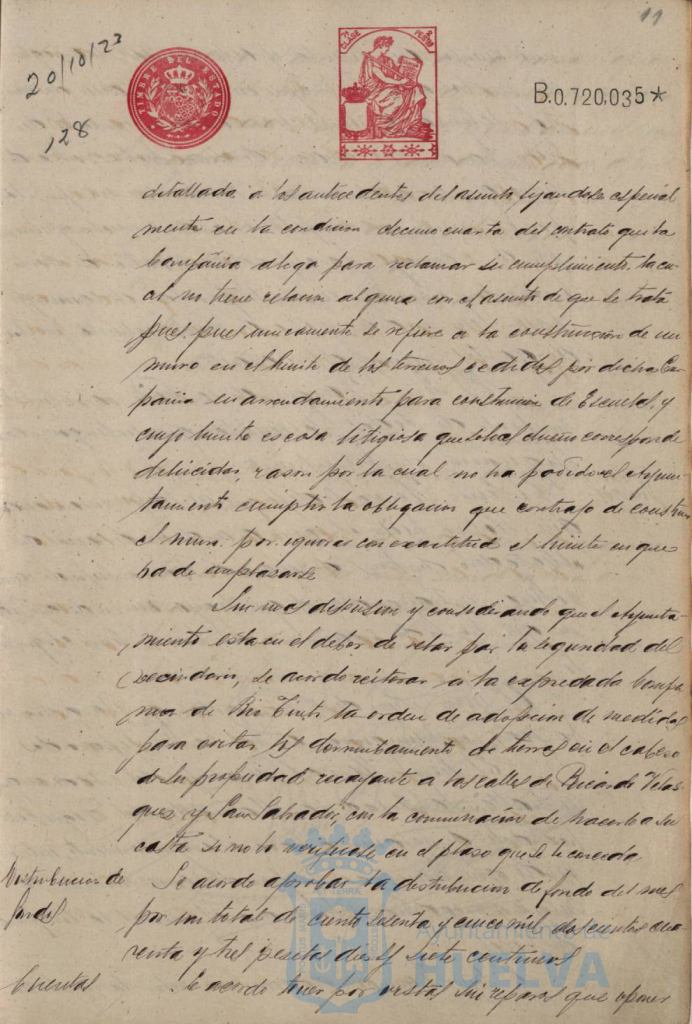 11
20/10/23
128
TIMBRE DEL ESTADO
CLASE
B.0.720,035*
detallada a los antecedentes del asunto, fijandose especial
mente en la condicion decimo cuarta del contrato que la
Compañia alega para reclamar su cumplimiento, la cu
al no tiene relacion alguna con el asunto de que se trata
pues, pues unicamente se refiere a la construccion de un
muro en el limite de los terrenos cedidos por dicha Com
pañia en arrendamiento para construccion de Escuelas, y
cuyo limite es cosa litigiosa que
dilucidar, razon por la cual no ha podido el Ayun
tamiento cumplir la obligacion que contrajo de construir
el muro por ignorar con exactitud el limite en que
ha de emplazarse
Sin mas discusion y considerando que el Ayunta-
miento esta en el deber de velar por la seguridad del
vecindario, se acordo reiterar a la expresada Compa
ñia de Rio Tinto la orden de adopcion de medidas
para evitar los derrumbamiento de tierras en el cabezo
de su propiedad recayente a las calles de Ricardo Velas
quez y San Salvador, con la conminacion de hacerlo a su
costa si no lo verificase en el plazo que se le conceda
Distribucion de
fondos
Se acordo aprobar la distribucion de fondos del mes
por un total de ciento sesenta y cinco mil doscientos cua
renta y tres pesetas diez y siete centimos
Cuentas
Se acordo tener por vistas sin reparos que oponer
Ayuntamiento de
HUELVA